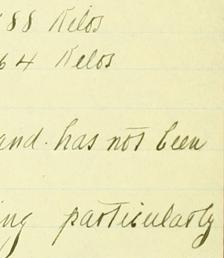 88 Kelos
64 Kelos
and has not been
ing particularly